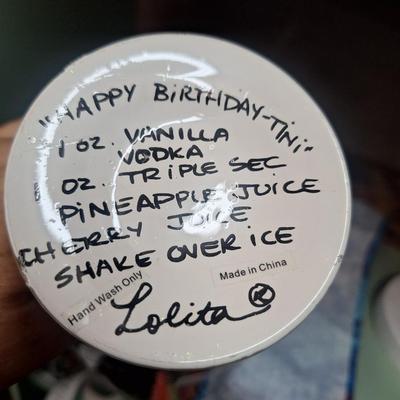 "HAPPY BIRTHDAY-TINI"
1 OZ. VANILLA
VODKA
OZ. TRIPLE SEC
PINEAPPLE JUICE
CHERRY JUICE
SHAKE OVER ICE
Hand Wash Only
Made in China
Lolita®